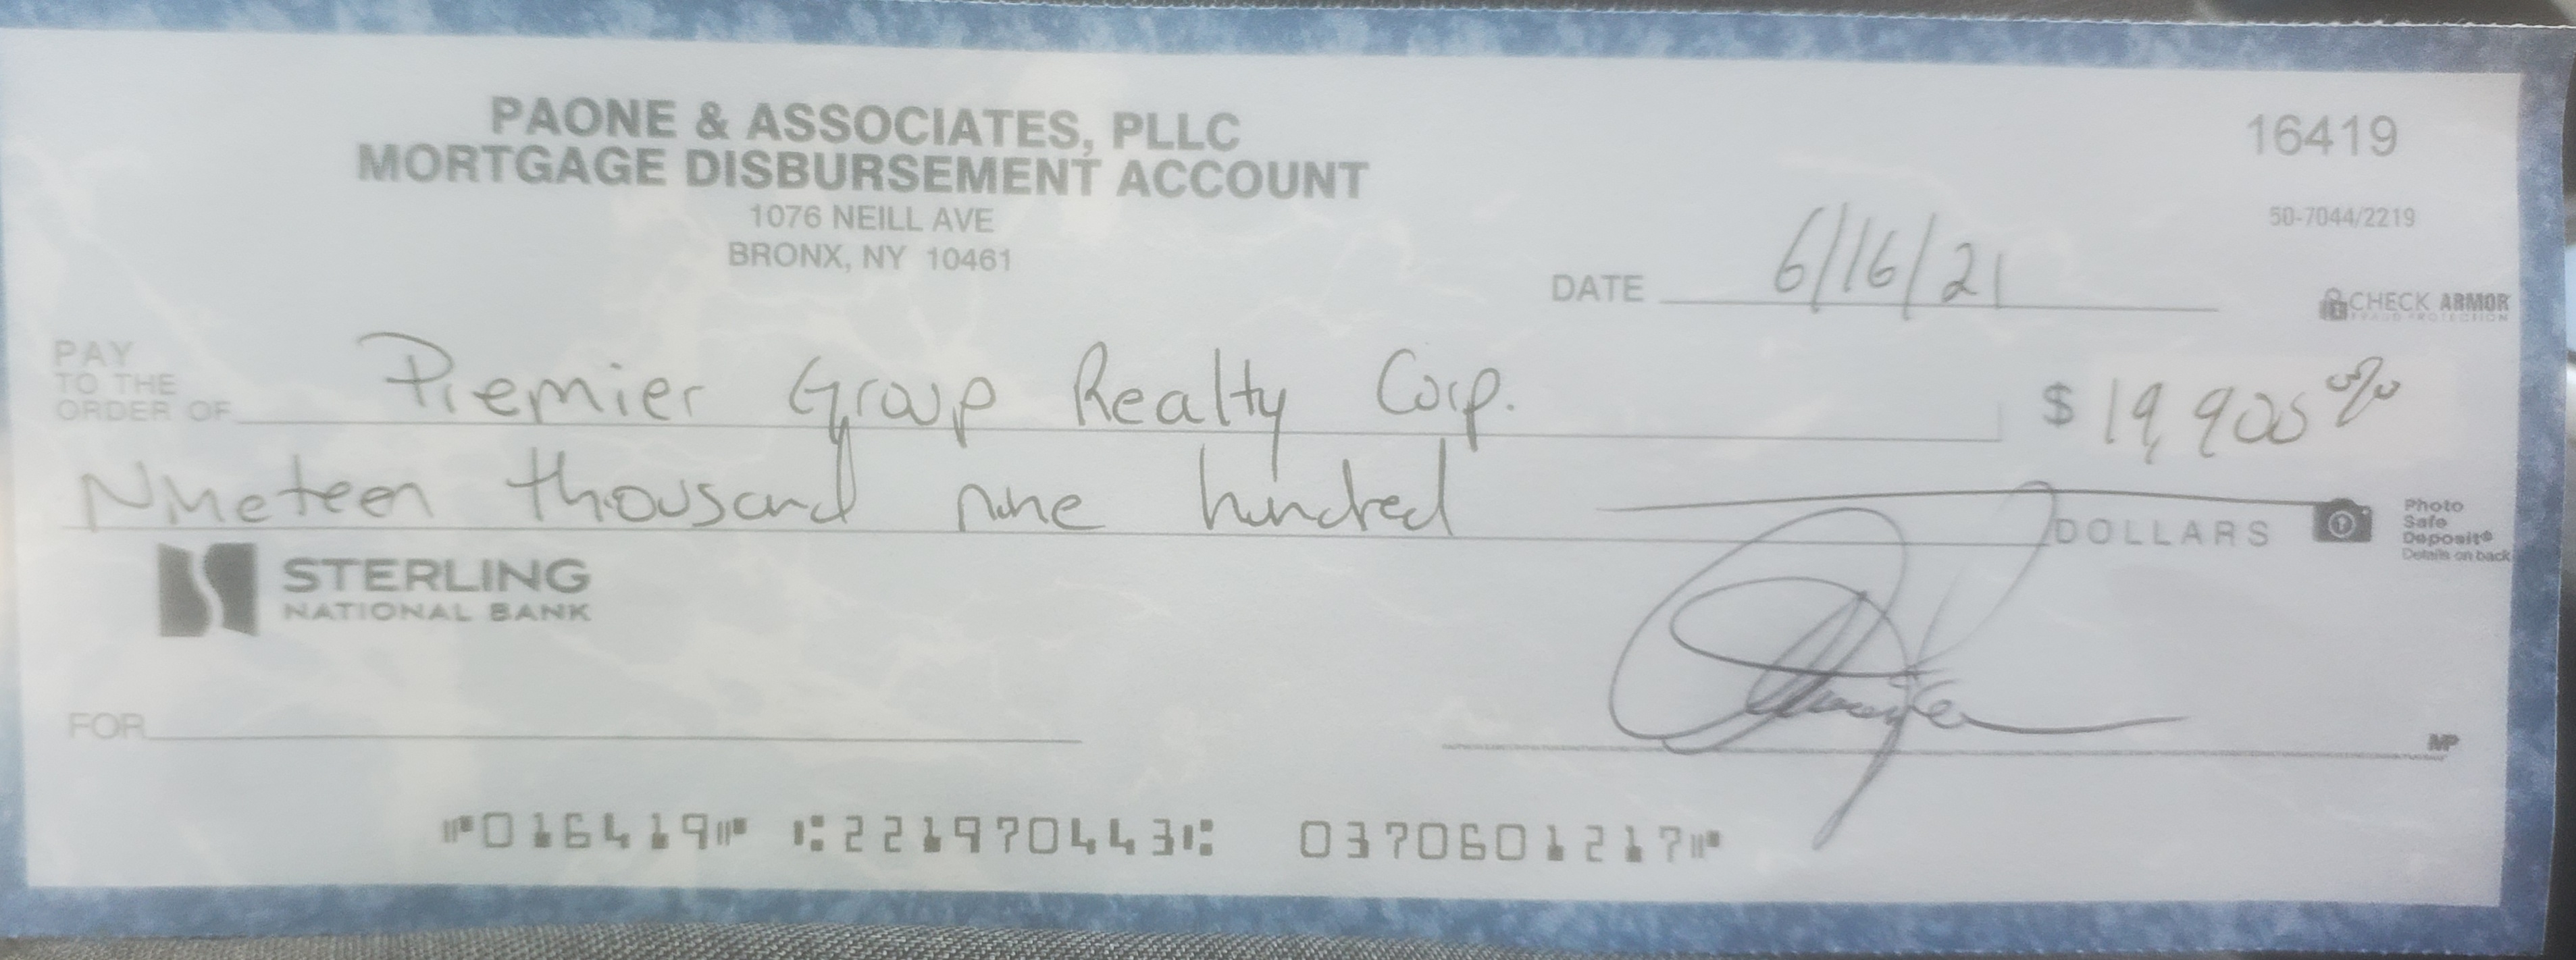 PAONE & ASSOCIATES, PLLC
MORTGAGE DISBURSEMENT ACCOUNT
1076 NEILL AVE
BRONX, NY 10461
16419
50-7044/2219
DATE 6/16/21
CHECK ARMOR
FRAUD PROTECTION
PAY
TO THE
ORDER OF Premier Group Realty Corp. $ 19,900
Nineteen thousand nine hundred DOLLARS
Photo
Safe
Deposit®
Details on back
STERLING
NATIONAL BANK
FOR
MP
⑈016419⑈ ⑆221970443⑆ 0370601217⑈